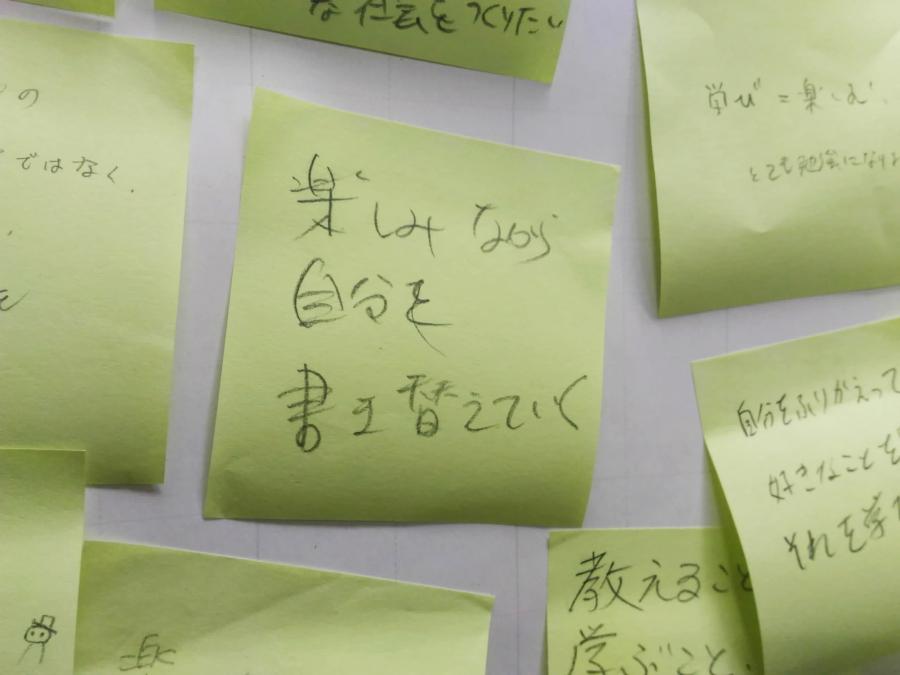 な社会をつくりたい
の
ではなく、
学び=楽しむ、
とても勉強になりま
楽しみながら
自分を
書き替えていく
自分をふりかえって
好きなことを
それを学
教えること
学ぶこと、